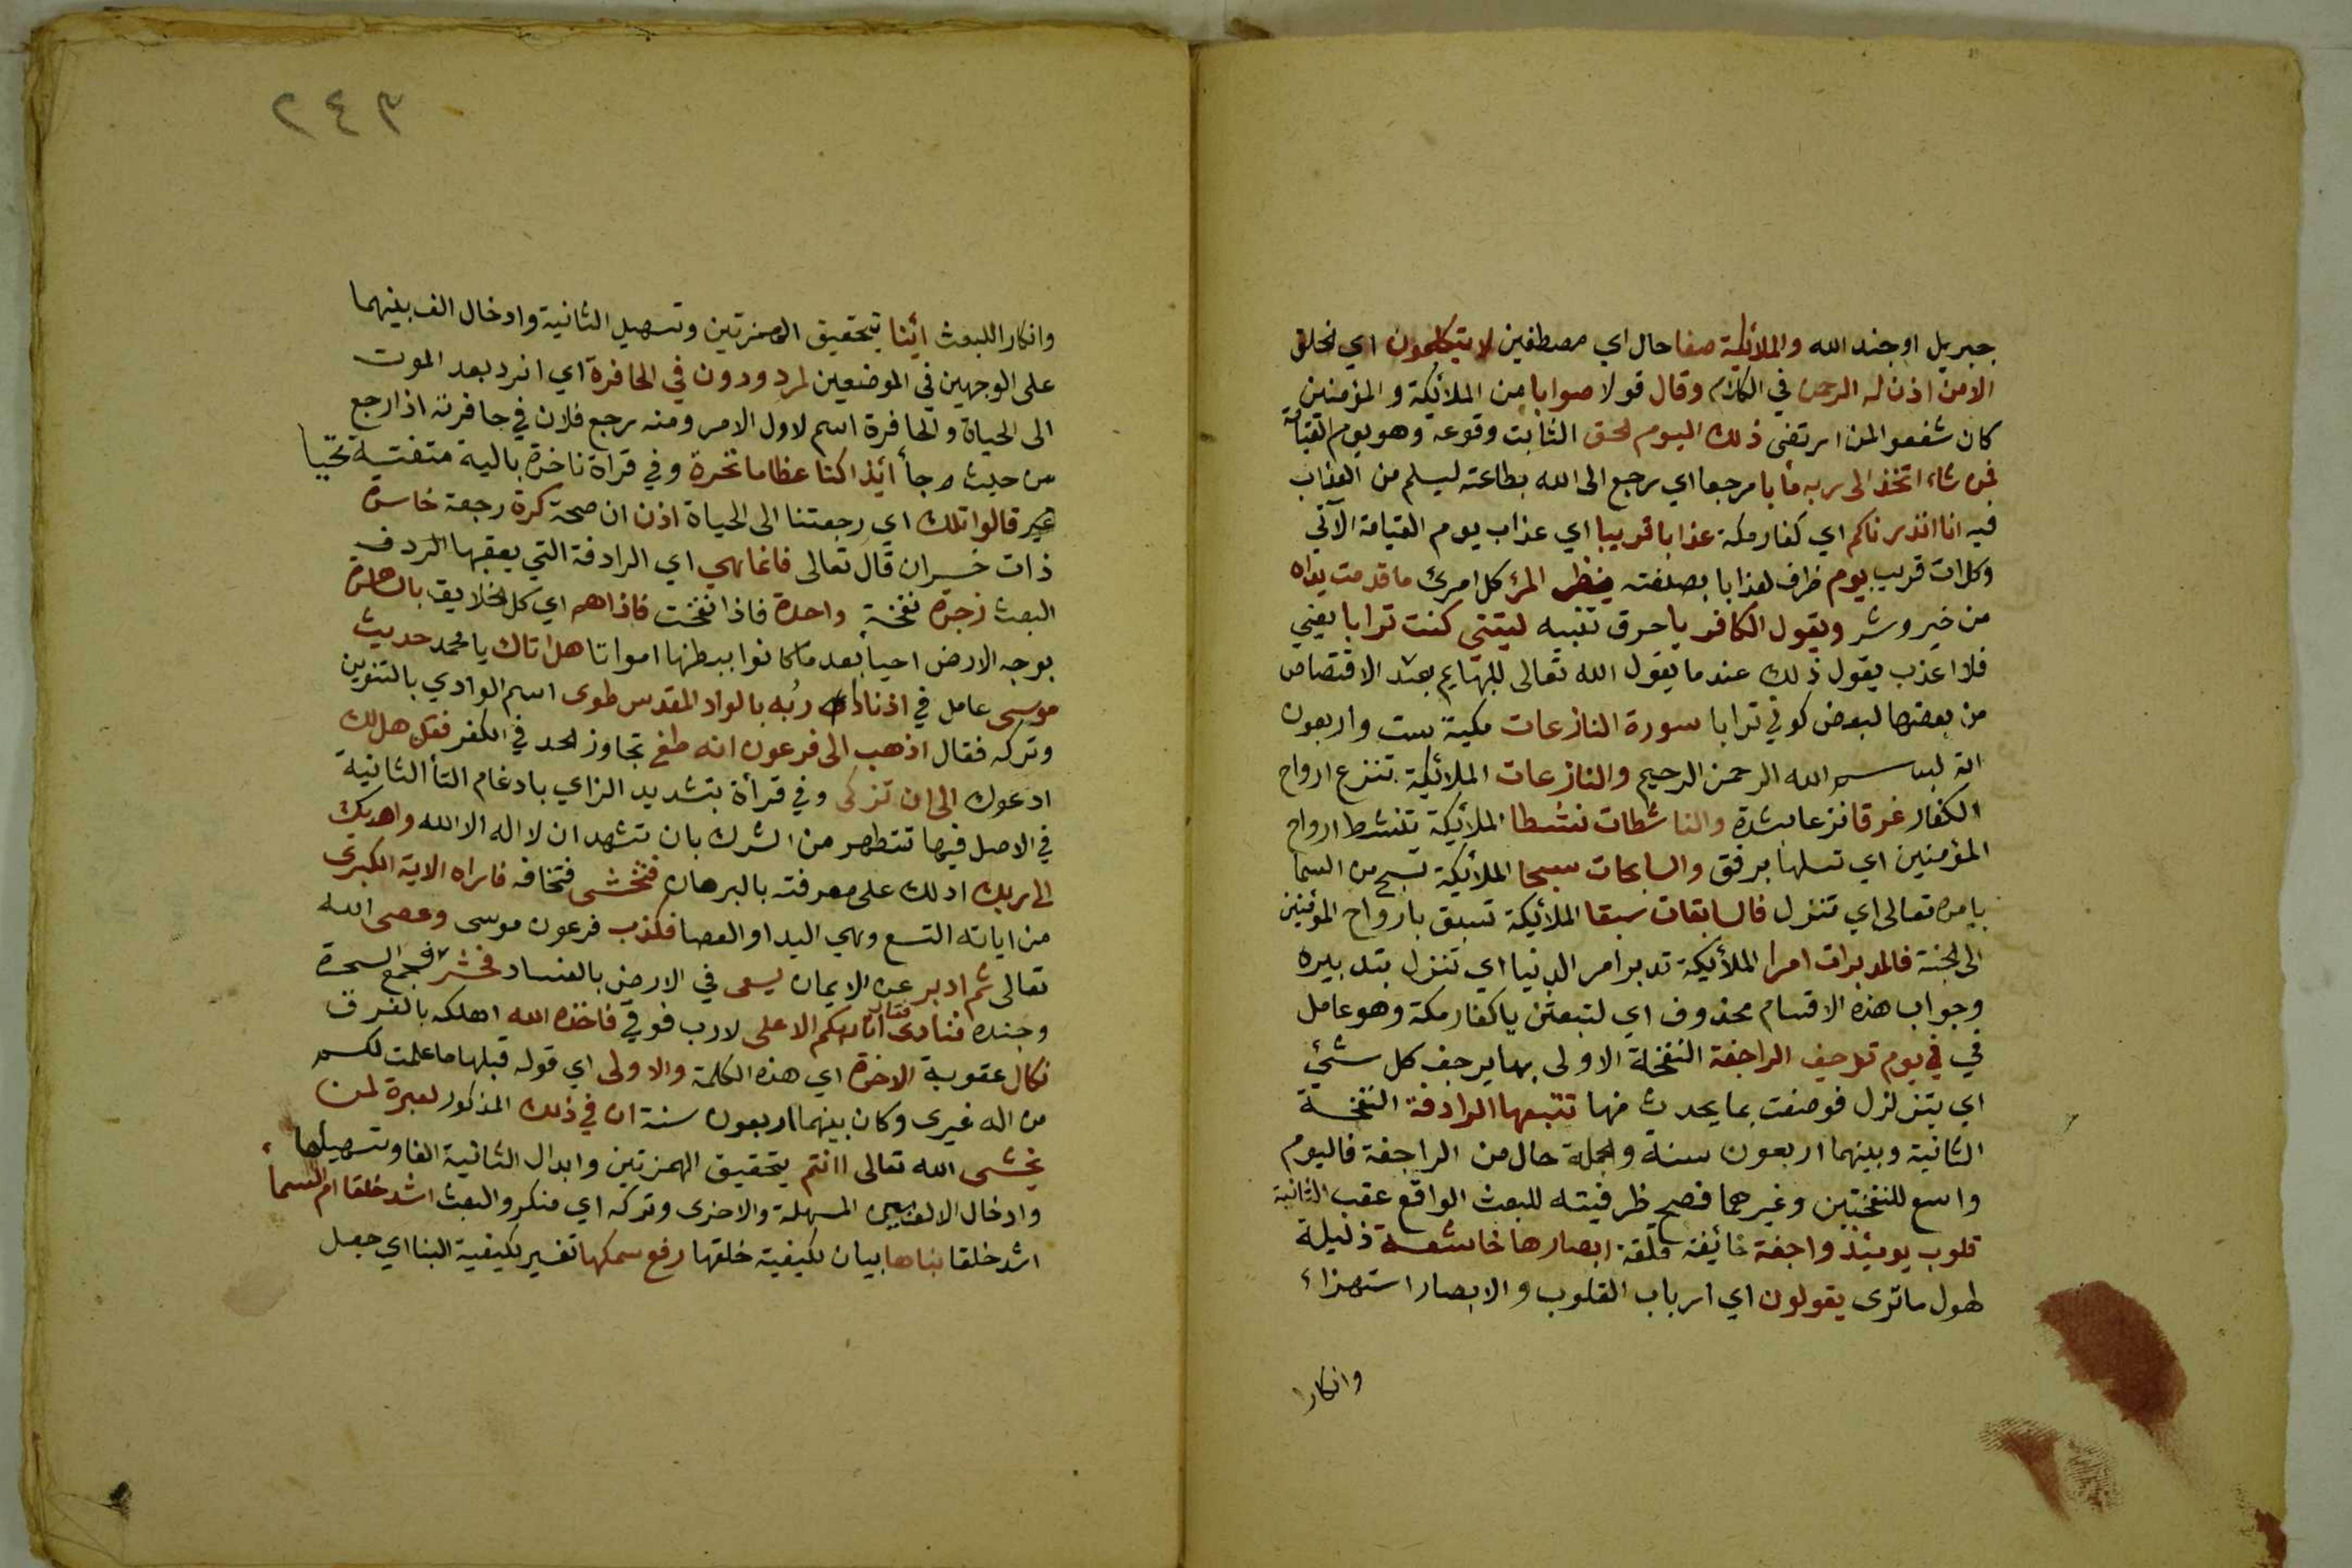 جبريل او جند الله والملائكة صفا حال اي مصطفين لا يتكلمون اي الخلق
الا من اذن له الرحمن في الكلام وقال قولا صوابا من الملائكة والمؤمنين
كان شفعوا لمن ارتضى ذلك اليوم الحق الثابت وقوعه وهو يوم القيامة
فمن شاء اتخذ الى ربه مأبا مرجعا اي رجع الى الله بطاعته ليسلم من العذاب
فيه انا انذرناكم اي كفار مكة عذابا قريبا اي عذاب يوم القيامة الآتي
وكل ات قريب يوم ظرف لعذابا بصفته ينظر المرء كل امرئ ما قدمت يداه
من خير وشر ويقول الكافر يا حرف تنبيه ليتني كنت ترابا يعني
فلا اعذب يقول ذلك عندما يقول الله تعالى للبهايم بعد الاقتصاص
من بعضها لبعض كوني ترابا سورة النازعات مكية ست واربعون
اية بسم الله الرحمن الرحيم والنازعات الملائكة تنزع ارواح
الكفار غرقا نزعا بشدة والناشطات نشطا الملائكة تنشط ارواح
المؤمنين اي تسلها برفق والسابحات سبحا الملائكة تسبح من السما
بامره تعالى اي تنزل فالسابقات سبقا الملائكة تسبق بارواح المؤمنين
الى الجنة فالمدبرات امرا الملائكة تدبر امر الدنيا اي تنزل بتدبيره
وجواب هذه الاقسام محذوف اي لتبعثن يا كفار مكة وهو عامل
في في يوم ترجف الراجفة النفخة الاولى بها يرجف كل شئ
اي يتزلزل فوصفت بما يحدث منها تتبعها الرادفة النفخة
الثانية وبينهما اربعون سنة والجملة حال من الراجفة فاليوم
واسع للنفختين وغيرهما فصح ظرفيته للبعث الواقع عقب الثانية
قلوب يومئذ واجفة خائفة قلقة ابصارها خاشعة ذليلة
لهول ما ترى يقولون اي ارباب القلوب والابصار استهزاء
وانكارا
٢٤٣
وانكارا للبعث أئنا بتحقيق الهمزتين وتسهيل الثانية وادخال الف بينهما
على الوجهين في الموضعين لمردودون في الحافرة اي انرد بعد الموت
الى الحياة والحافرة اسم لاول الامر ومنه رجع فلان في حافرته اذا رجع
من حيث جأ أئذا كنا عظاما نخرة وفي قراة ناخرة بالية متفتة تحيا
قالوا تلك اي رجعتنا الى الحياة اذن ان صحة كرة رجعة خاسرة
ذات خسران قال تعالى فانما هي اي الرادفة التي يعقبها
البعث زجرة نفخة واحدة فاذا نفخت فاذا هم اي كل الخلايق بالساهرة
بوجه الارض احيا بعد ما كانوا ببطنها امواتا هل اتاك يا محمد حديث
موسى عامل في اذ ناداه ربه بالواد المقدس طوى اسم الوادي بالتنوين
وتركه فقال اذهب الى فرعون انه طغى تجاوز الحد في الكفر فقل هل لك
ادعوك الى ان تزكى وفي قرأة بتشديد الزاي بادغام التأ الثانية
في الاصل فيها تتطهر من الشرك بان تشهد ان لا اله الا الله واهديك
الى ربك ادلك على معرفته بالبرهان فتخشى فتخافه فاراه الاية الكبرى
من اياته التسع وهي اليد او العصا فكذب فرعون موسى وعصى الله
تعالى ثم ادبر عن الايمان يسعى في الارض بالفساد فحشر فجمع السحرة
وجنده فنادى فقال انا ربكم الاعلى لا رب فوقي فاخذه الله اهلكه بالغرق
نكال عقوبة الاخرة اي هذه الكلمة والاولى اي قوله قبلها ما علمت لكم
من اله غيرى وكان بينهما اربعون سنة ان في ذلك المذكور لعبرة لمن
يخشى الله تعالى اانتم بتحقيق الهمزتين وابدال الثانية الفا وتسهيلها
وادخال الالف بين المسهلة والاخرى وتركه اي منكروا البعث اشد خلقا ام السما
اشد خلقا بناها بيان لكيفية خلقها رفع سمكها تفسير لكيفية البنا اي جعل